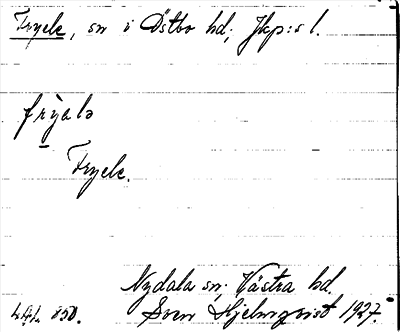 Fryele, sn i Östbo hd, Jkp:s l.
fryàlə
Fryele.
Nydala sn, Västra hd.
Sven Hjelmqvist 1927.
850.